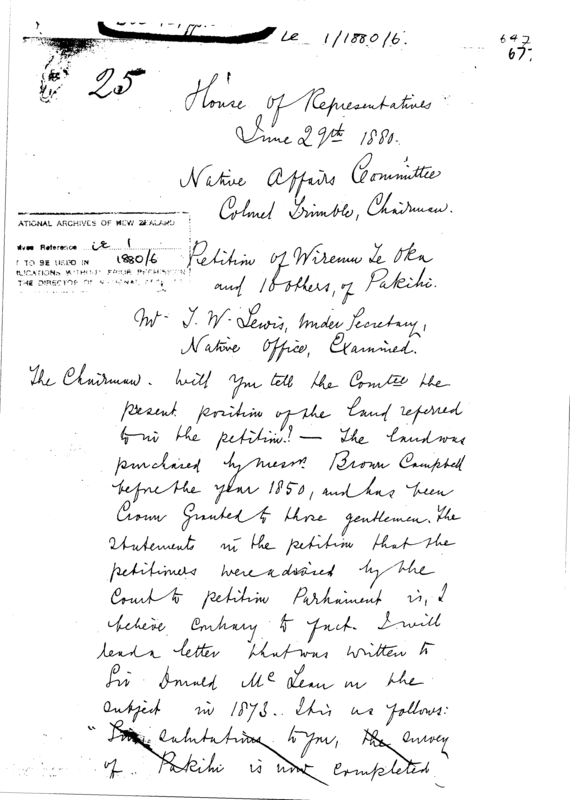 Le 1/1880/6.
647
67.
25
House of Representatives
June 29th 1880.
Native Affairs Committee
Colonel Trimble, Chairman.
ATIONAL ARCHIVES OF NEW ZEALAND
ives Reference Le 1
1880/6
T TO BE USED IN
LICATIONS WITHOUT PRIOR PERMISSION
THE DIRECTOR OF NATIONAL
Petition of Wiremu Te Oka
and 16 others, of Pakihi.
Mr T. W. Lewis, Under Secretary,
Native Office, Examined.
The Chairman. Will you tell the Comtee the
present position of the land referred
to in the petition? — The land was
purchased by Messrs. Brown Campbell
before the year 1850, and has been
Crown Granted to those gentlemen. The
Statements in the petition that the
petitioners were advised by the
Court to petition Parliament is, I
believe contrary to fact. I will
read a letter that was written to
Sir Donald McLean on the
subject in 1873. It is as follows:
" Sir. salutations to you, the survey
of Pakihi is now completed